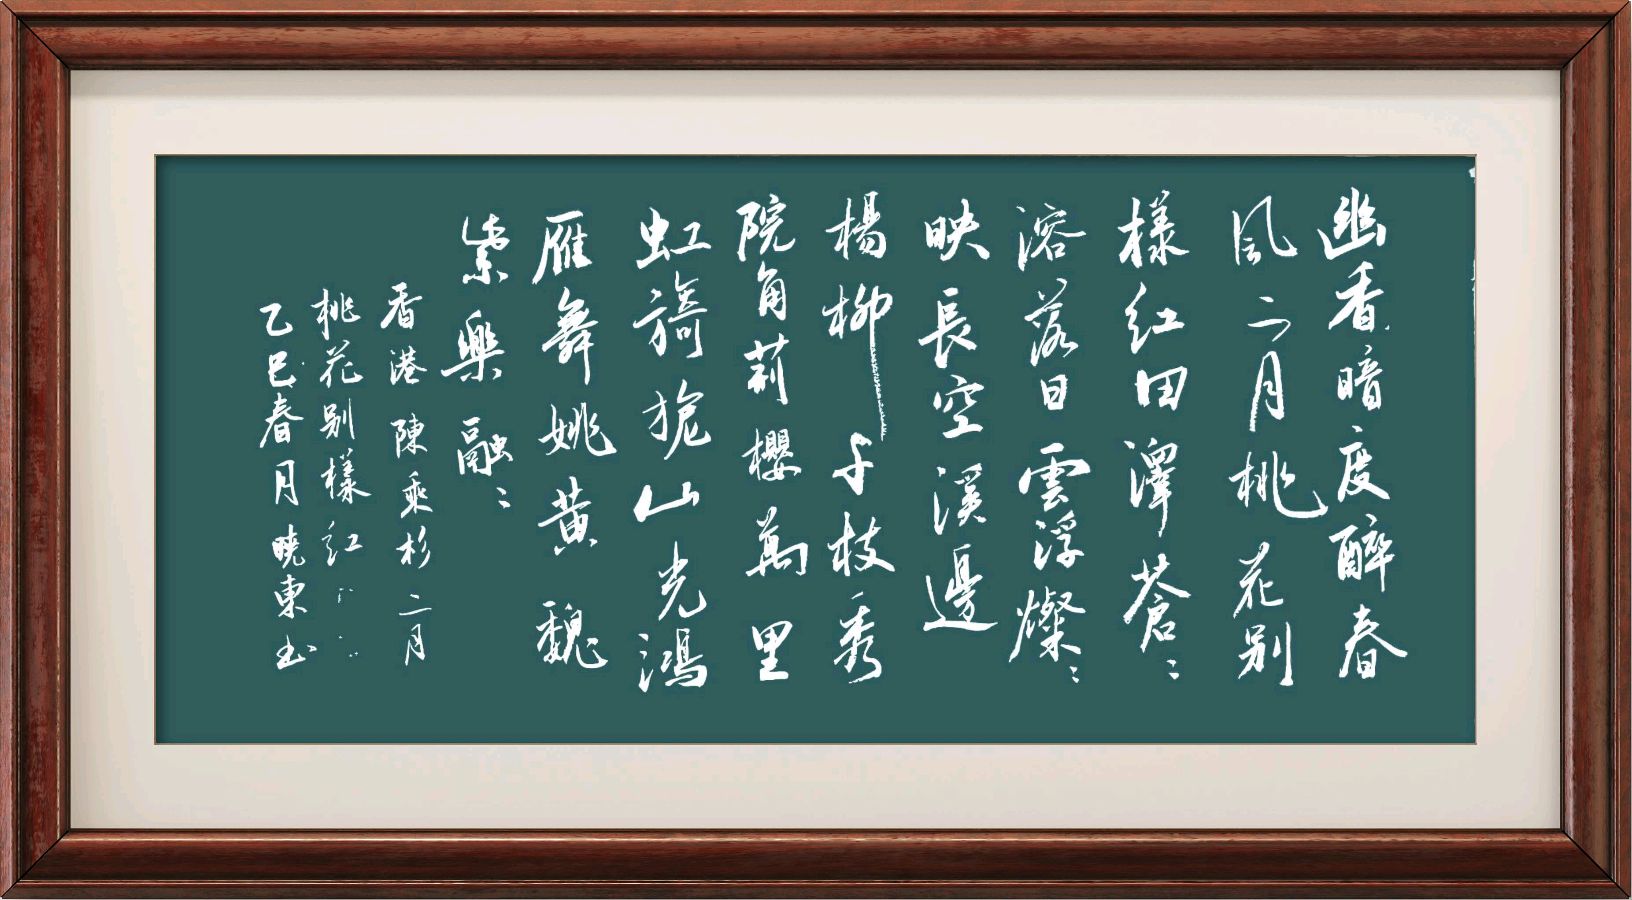 幽香暗度醉春
风二月桃花别
樣红田澤蒼〻
溶落日雲浮燦〻
映長空溪邊
楊柳千枝秀
院角莉櫻萬里
虹旖旎山光鴻
雁舞姚黄魏
紫樂融〻
香港陳乘杉二月
桃花别樣红
乙巳春月曉東书